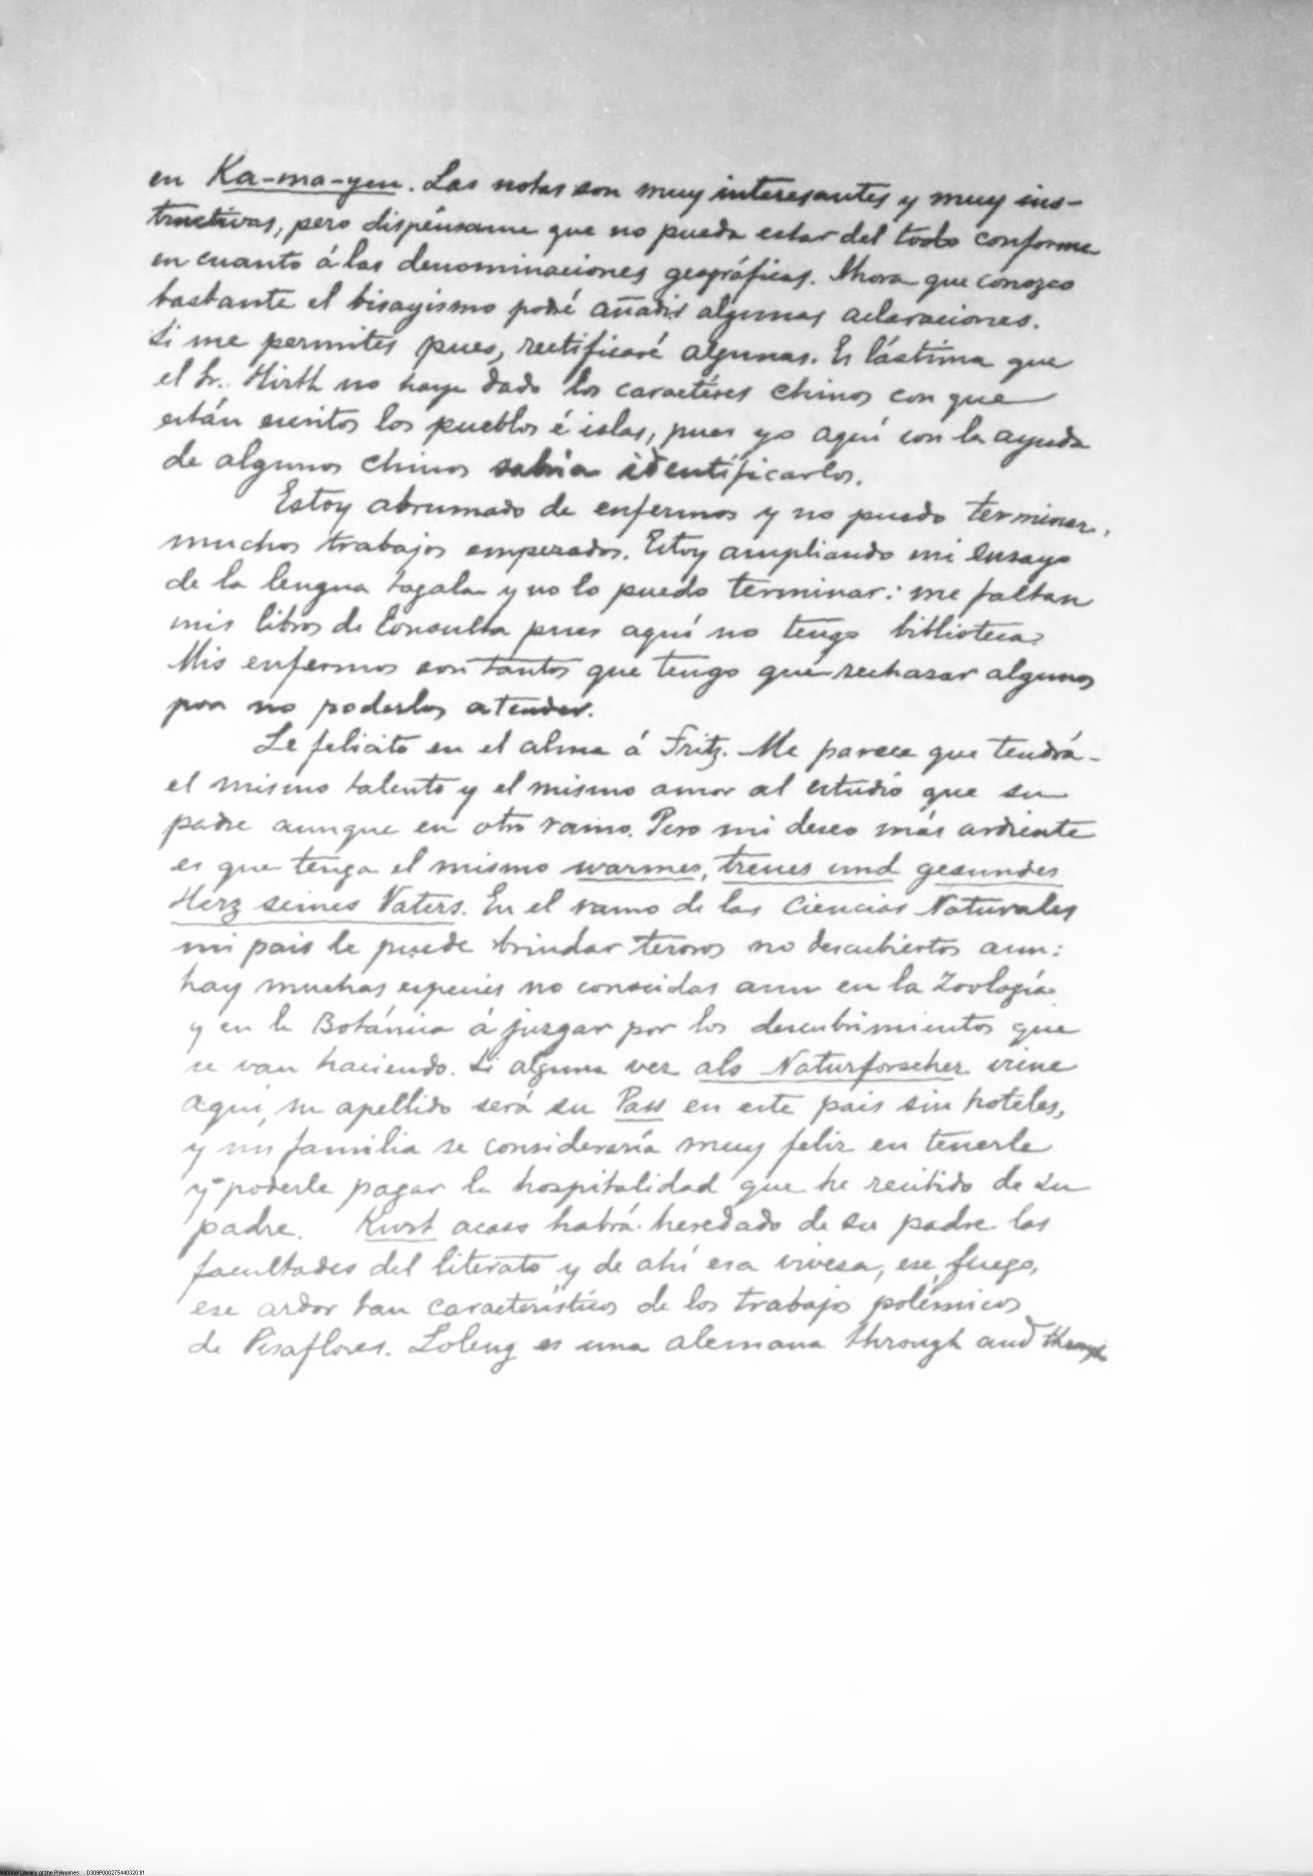 en Ka-ma-yen. Las notas son muy interesantes y muy ins-
tructivas, pero dispénsame que no pueda estar del todo conforme
en cuanto á las denominaciones geográficas. Ahora que conozco
bastante el bisayismo podré añadir algunas aclaraciones.
Si me permites pues, rectificaré algunas. Es lástima que
el Sr. Hirth no haya dado los caractéres chinos con que
están escritos los pueblos é islas, pues yo aquí con la ayuda
de algunos chinos sabria identificarlos.
Estoy abrumado de enfermos y no puedo terminar
muchos trabajos empezados. Estoy ampliando mi ensayo
de la lengua tagala y no lo puedo terminar: me faltan
mis libros de consulta pues aquí no tengo biblioteca.
Mis enfermos son tantos que tengo que rechazar algunos
por no poderlos atender.
Le felicito en el alma á Fritz. Me parece que tendrá
el mismo talento y el mismo amor al estudio que su
padre aunque en otro ramo. Pero mi deseo más ardiente
es que tenga el mismo warmes, treues und gesundes
Herz seines Vaters. En el ramo de las Ciencias Naturales
mi pais le puede brindar tesoros no descubiertos aun:
hay muchas especies no conocidas aun en la Zoología
y en la Botánica á juzgar por los descubrimientos que
se van haciendo. Si alguna vez als Naturforscher viene
aquí, su apellido será su Pass en este pais sin hoteles,
y mi familia se consideraría muy feliz en tenerle
y poderle pagar la hospitalidad que he recibido de su
padre. Kurt acaso habrá heredado de su padre las
facultades del literato y de ahí esa viveza, ese fuego,
ese ardor tan característicos de los trabajos polémicos
de Pisaflores. Loleng es una alemana through and through